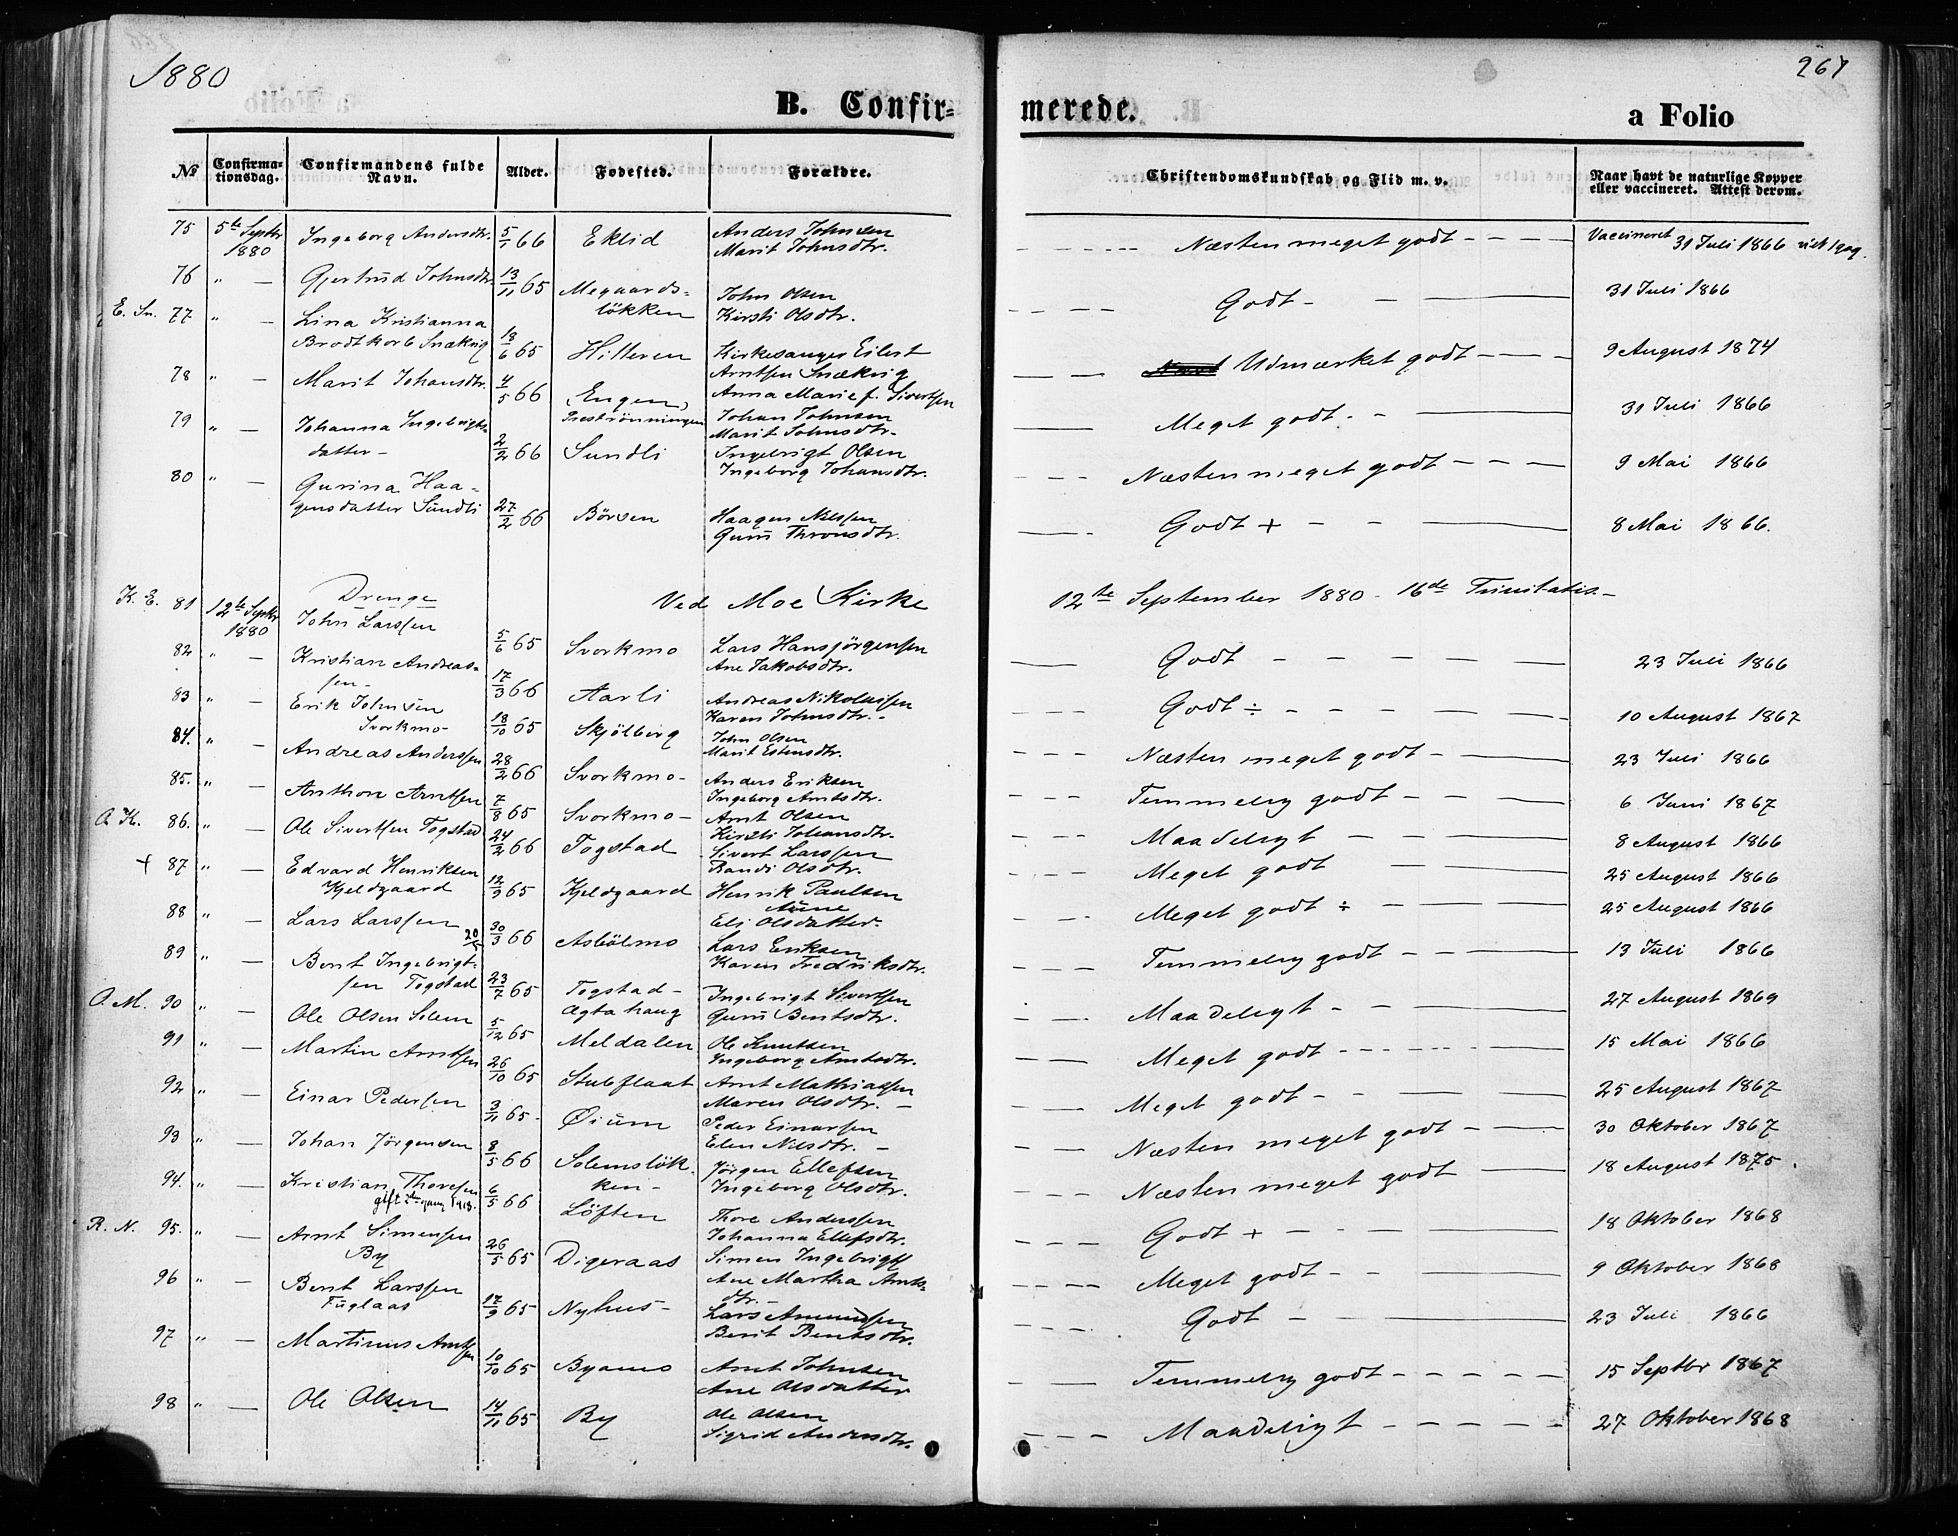 1880
267
B. Confir=
merede.
a Folio
No
Confirma-
tionsdag.
Confirmandens fulde
Navn.
Alder.
Fødested.
Forældre.
Christendomskundskab og Flid m. v.
Naar havt de naturlige Kopper
eller vaccineret. Attest derom.
75 5te Septbr 1880 Ingeborg Andersdtr. 5/1 66 Eklid Anders Johnsen
Marit Johnsdtr. Næsten meget godt Vaccineret 31 Juli 1866
76 " — Gjertrud Johnsdtr. 13/11 65 Megaards-
løkken John Olsen
Kirsti Olsdtr. Godt 31 Juli 1866
E. Sn. 77 " — Lina Kristianna
Brodtkorb Snækvig 13/6 65 Hitteren Kirkesanger Eilert
Arntsen Snækvig
Anna Marie f. Sivertsen Udmærket godt 9 August 1874
78 " — Marit Johansdtr. 4/5 66 Engen,
Prestrønningen Johan Johnsen
Marit Johnsdtr. Meget godt 31 Juli 1866
79 " — Johanna Ingebrigts-
datter 2/2 66 Sundli Ingebrigt Olsen
Ingeborg Johansdtr. Næsten meget godt 9 Mai 1866
80 " — Gurina Haa-
gensdatter Sundli 27/2 66 Börsen Haagen Nilssen
Guru Thronsdtr. Godt + 8 Mai 1866.
Drenge Ved Moe Kirke 12te September 1880 - 16de Trinitatis.
K. E. 81 12te Septbr 1880 John Larssen 5/6 65 Svorkmo Lars Hansjörgensen
Ane Jakobsdtr. Godt 23 Juli 1866
82 " — Kristian Andreas-
sen 17/3 66 Aarli Andreas Nikolaissen
Karen Johnsdtr. Godt ÷ 10 August 1867
83 " — Erik Johnsen
Svorkmo 18/10 65 Skjölberg John Olsen
Marit Estensdtr. Næsten meget godt 23 Juli 1866
84. " — Andreas Anderssen 28/2 66 Svorkmo Anders Eriksen
Ingeborg Arntsdtr. Temmelig godt 6 Juni 1867
85. " — Anthon Arntsen 7/8 65 Svorkmo Arnt Olsen
Kirsti Johansdtr. Maadeligt 8 August 1866
O. K. 86. " — Ole Sivertsen Togstad 24/2 66 Togstad Sivert Larssen
Randi Olsdtr. Meget godt 25 August 1866
+ 87 " — Edvard Henriksen
Kjeldgaard 12/9 65 Kjeldgaard Henrik Paulsen
Aune
Eli Olsdatter Meget godt ÷ 25 August 1866
88 " — Lars Larssen 30/3 66 Asbölmo Lars Eriksen
Karen Fredriksdtr. Temmelig godt 13 Juli 1866
89 " — Bent Ingebrigt-
sen Togstad 23/7 65 Togstad
Agtahaug Ingebrigt Sivertsen
Guru Bentsdtr. Maadeligt 27 August 1869
O. M. 90 " — Ole Olsen Solem 5/12 65 Meldalen Ole Knutsen
Ingeborg Arntsdtr. Meget godt 15 Mai 1866
91 " — Martin Arntsen 26/10 65 Stubflaat Arnt Mathiassen
Maren Olsdtr. Meget godt 25 August 1867
92 " — Einar Pedersen 3/11 65 Øium Peder Einarsen
Elen Nilsdtr. Næsten meget godt 30 Oktober 1867
93 " — Johan Jörgensen 8/5 66 Solemslök-
ken Jörgen Ellefsen
Ingeborg Olsdtr. Næsten meget godt 18 August 1875.
94. " — Kristian Thoresen
gift 1918. 6/5 66 Löften Thore Anderssen
Johanna Ellefsdtr. Godt + 18 Oktober 1868
R. N. 95. " — Arnt Simensen
By 26/5 65 Digeraas Simen Ingebrigts
Ane Martha Arnts-
dtr. Meget godt 9 Oktober 1868
96 " — Berit Larssen
Fuglaas 17/9 65 Nyhus Lars Amundsen
Berit Bentsdtr. Godt 23 Juli 1866
97 " — Martinus Arntsen 10/10 65 Byamo Arnt Johnsen
Ane Olsdatter Temmelig godt 15 Septbr 1867
98 " — Ole Olsen 14/11 65 By Ole Olsen
Sigrid Andersdtr. Maadeligt 27 Oktober 1868